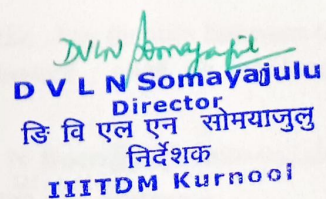 DVLN Somayajulu
D V L N Somayajulu
Director
डि वि एल एन सोमयाजुलु
निर्देशक
IIITDM Kurnool